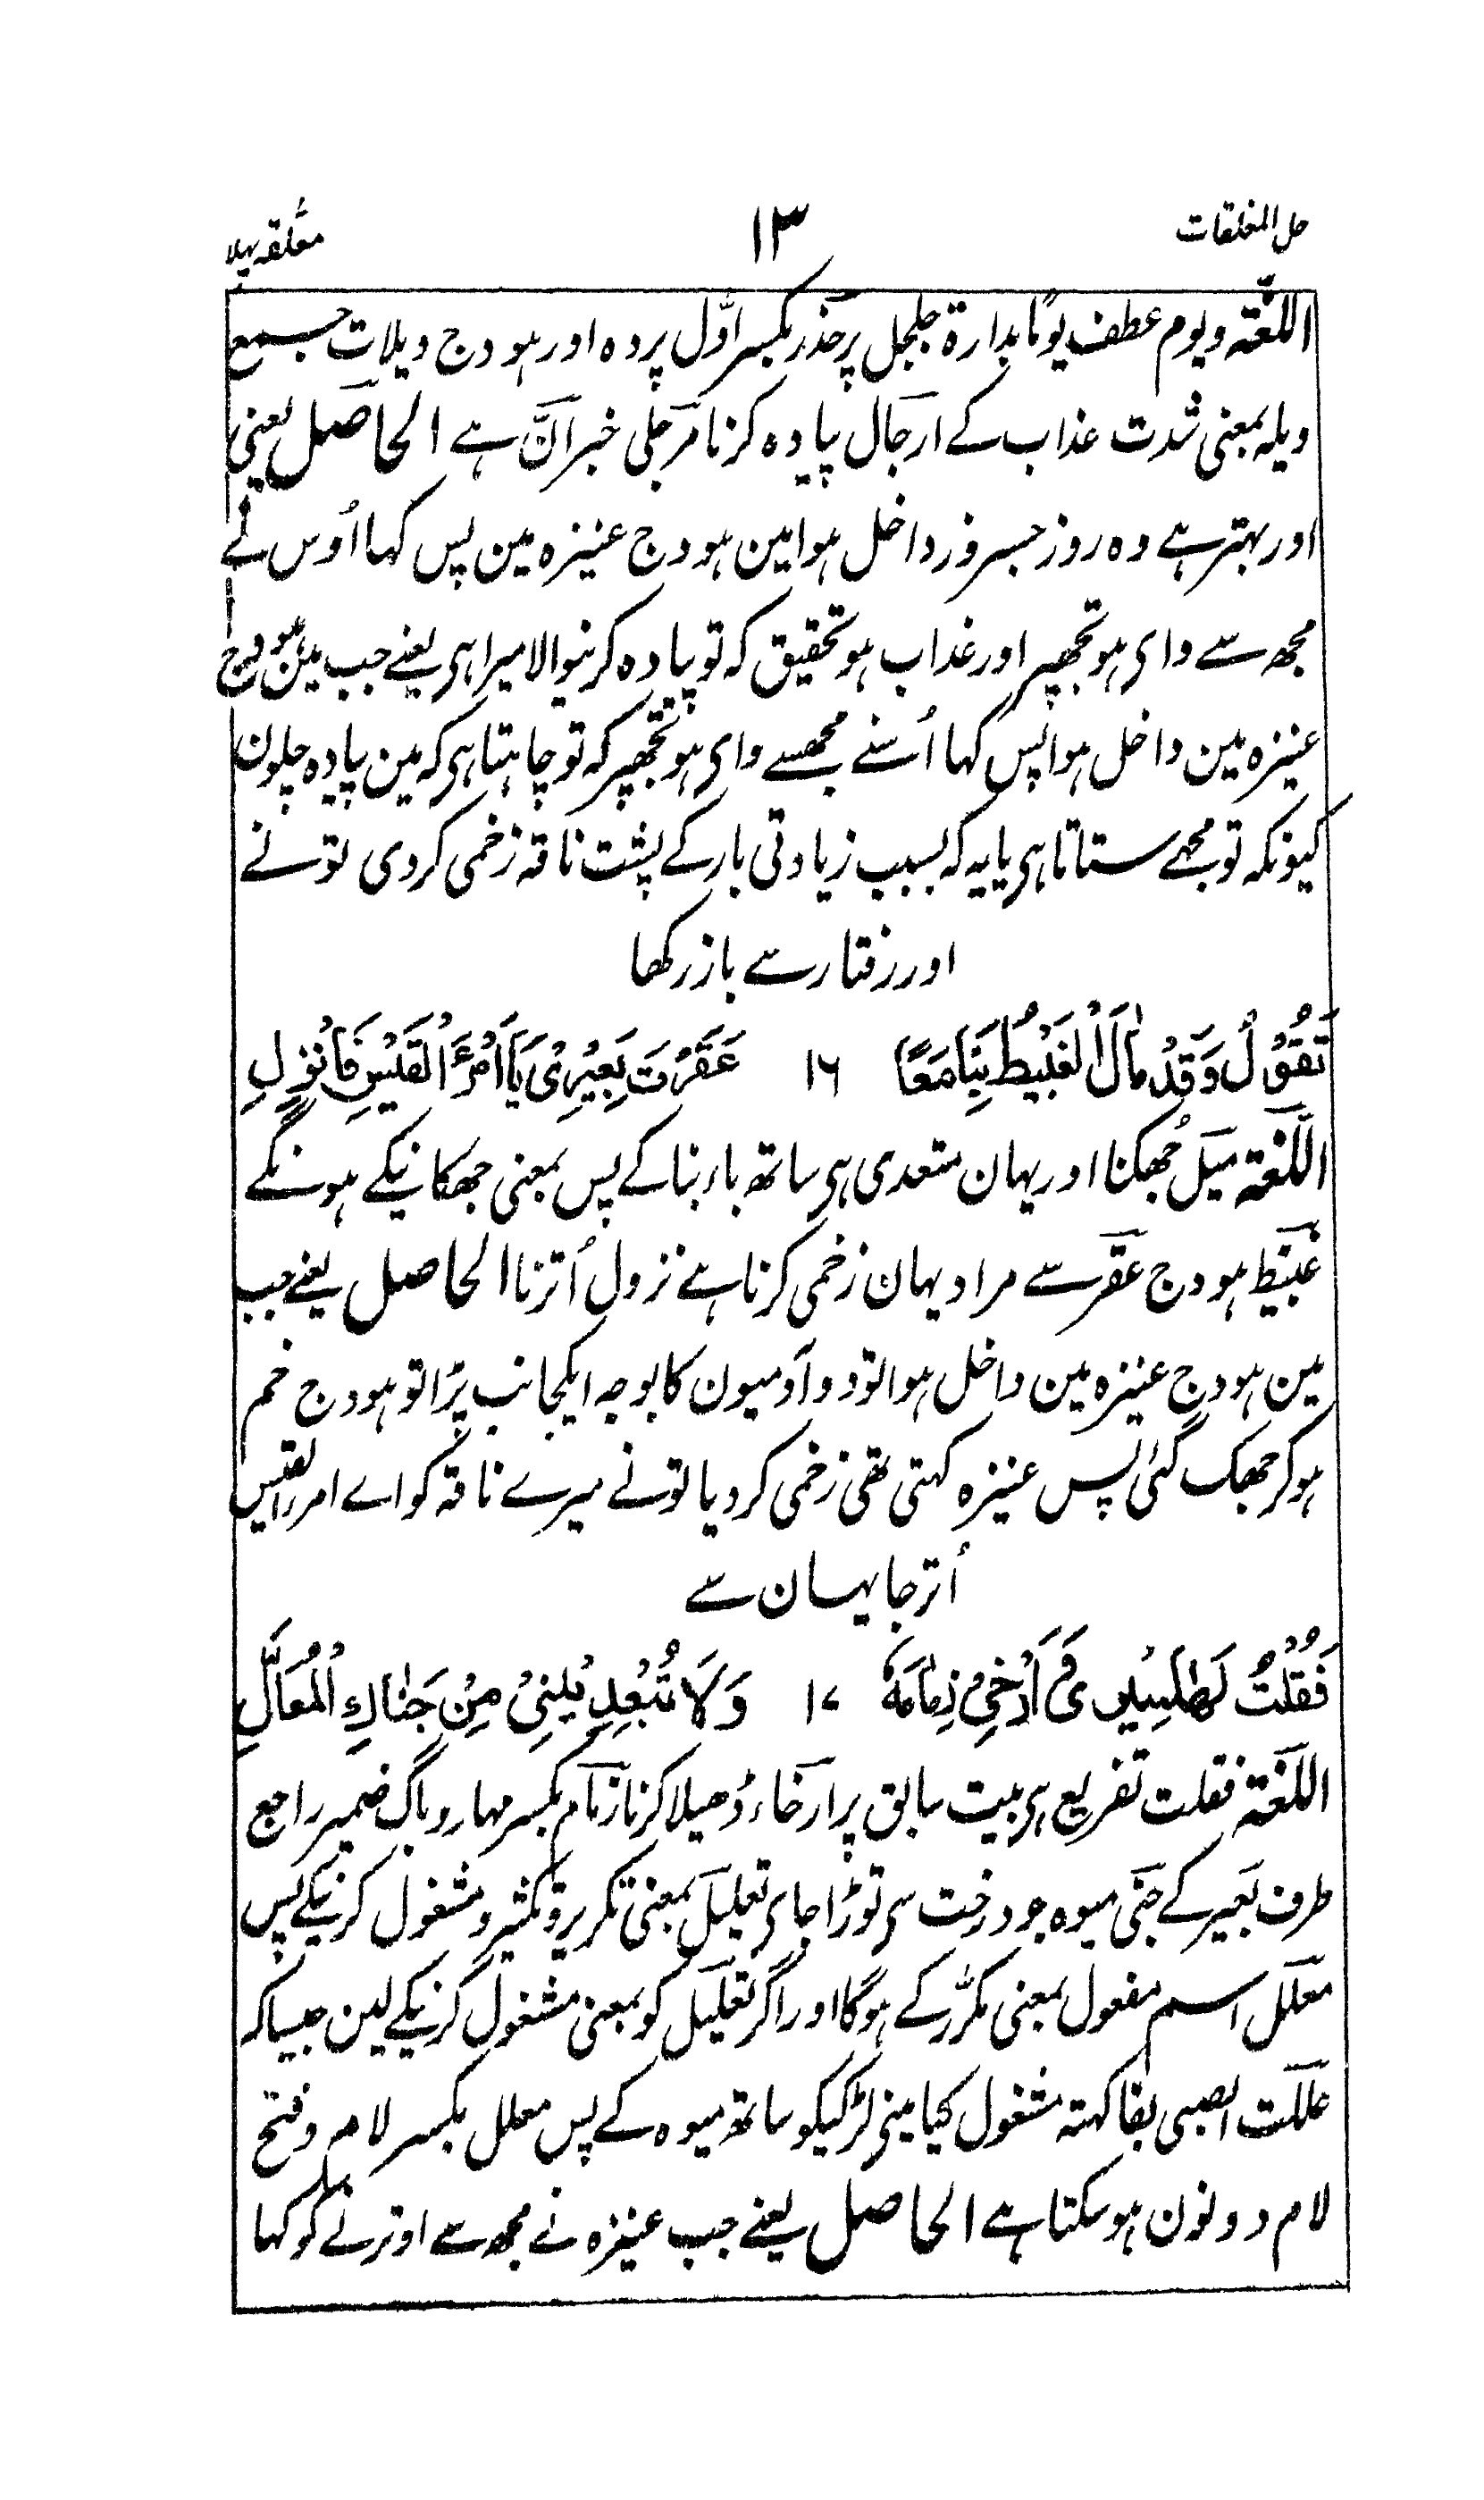 حل المغلقات ۱۳ معلّقہ پہلا
اللّغۃ ویوم عطف یومًا بدارۃ جلجل پر خدر بکسر اوّل پردہ اور ہودج ویلات جمع
ویلہ بمعنی شدت عذاب کے ارجال پیادہ کرنا مرجلی خبر انّ ہے الحاصل یعنی
اور بہتر ہے وہ روز جسروز داخل ہوا مین ہودج عنیزہ مین پس کہا اُوس نے
مجھ سے وای ہو تجھپر اور عذاب ہو تحقیق کہ تو پیادہ کرنیوالا میرا ہی یعنے جب مین ہودج
عنیزہ مین داخل ہوا پس کہا اُسنے مجھسے وای ہو تجھپر کہ تو چاہتا ہی کہ مین پیادہ چلون
کیونکہ تو مجھے ستاتا ہی یا یہ کہ بسبب زیادتی بار کے پشت ناقہ زخمی کر دی تو نے
اور رفتار سے باز رکھا
تَقُوْلُ وَقَدْ مَالَ الْغَبِیْطُ بِنَا مَعًا ۱۶ عَقَرْتَ بَعِیْرِیْ یَا امْرَءَ الْقَیْسِ فَانْزِلِ
اللّغۃ میل جُھکنا اور یہان متعدی ہی ساتھ باء بنا کے پس بمعنی جھکانیکے ہونگے
غبیط ہودج عقر سے مراد یہان زخمی کرنا ہے نزول اُترنا الحاصل یعنے جب
مین ہودج عنیزہ مین داخل ہوا تو دو آدمیون کا بوجہ ایکجانب پڑا تو ہودج خم
ہو کر جھک گئی پس عنیزہ کہتی تھی زخمی کر دیا تو نے میرے ناقہ کو اے امرء القیس
اُتر جا یہان سے
فَقُلْتُ لَهَا سِیْرِیْ وَاَرْخِیْ زِمَامَهٗ ۱۷ وَلَا تُبْعِدِیْنِیْ مِنْ جَنَاكِ الْمُعَلَّلِ
اللّغۃ فقلت تفریع ہی بیت سابق پر ارخاء ڈھیلا کرنا زمام بکسر مہار و باگ ضمیر راجع
طرف بعیر کے جنی میوہ جو درخت سی توڑا جای تعلیل بمعنی تکریر و تکثیر و مشغول کرنیکے پس
معلل اسم مفعول بمعنی مکرّر کے ہوگا اور اگر تعلیل کو بمعنی مشغول کرنیکے لین جیسا کہ
عللت الصبی بفاکہتہ مشغول کیا مینی لڑکیکو ساتھ میوہ کے پس معلل بکسر لام و فتح
لام دونون ہو سکتا ہے الحاصل یعنے جب عنیزہ نے مجھ سے اوترنے کو کہا